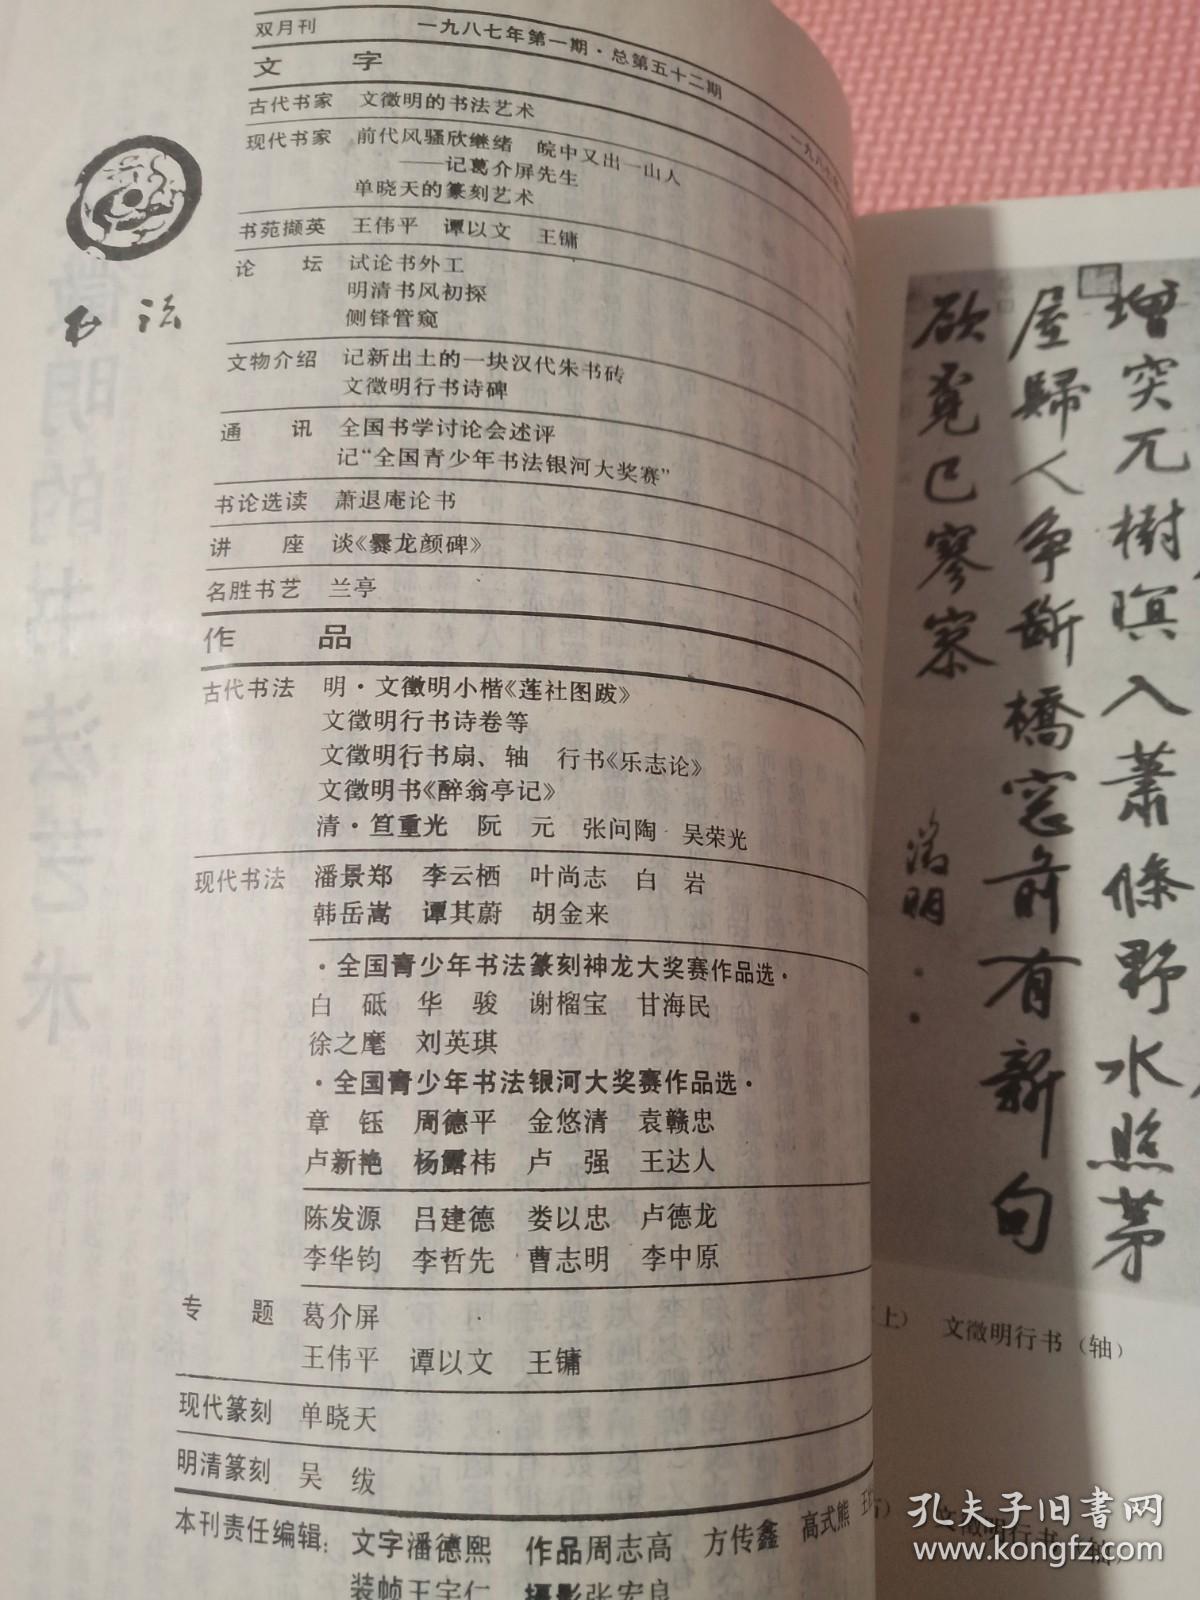 双月刊 一九八七年第一期·总第五十二期
文 字
古代书家 文徵明的书法艺术
现代书家 前代风骚欣继绪 皖中又出一山人
——记葛介屏先生
单晓天的篆刻艺术
书苑撷英 王伟平 谭以文 王镛
论 坛 试论书外工
明清书风初探
侧锋管窥
文物介绍 记新出土的一块汉代朱书砖
文徵明行书诗碑
通 讯 全国书学讨论会述评
记“全国青少年书法银河大奖赛”
书论选读 萧退庵论书
讲 座 谈《爨龙颜碑》
名胜书艺 兰亭
作 品
古代书法 明·文徵明小楷《莲社图跋》
文徵明行书诗卷等
文徵明行书扇、轴 行书《乐志论》
文徵明书《醉翁亭记》
清·笪重光 阮 元 张问陶 吴荣光
现代书法 潘景郑 李云栖 叶尚志 白 岩
韩岳嵩 谭其蔚 胡金来
·全国青少年书法篆刻神龙大奖赛作品选·
白 砥 华 骏 谢榴宝 甘海民
徐之麾 刘英琪
·全国青少年书法银河大奖赛作品选·
章 钰 周德平 金悠清 袁赣忠
卢新艳 杨露祎 卢 强 王达人
陈发源 吕建德 娄以忠 卢德龙
李华钧 李哲先 曹志明 李中原
专 题 葛介屏
王伟平 谭以文 王镛
现代篆刻 单晓天
明清篆刻 吴 绂
本刊责任编辑：文字潘德熙 作品周志高 方传鑫 高式熊
装帧王宇仁 摄影张安良
书法
增突兀樹暝入蕭條野水照茅
屋歸人争斷橋窓前有新句
欲覔已寥寥
徵明
上） 文徵明行书（轴）
文徵明行书
孔夫子旧书网
www.kongfz.com